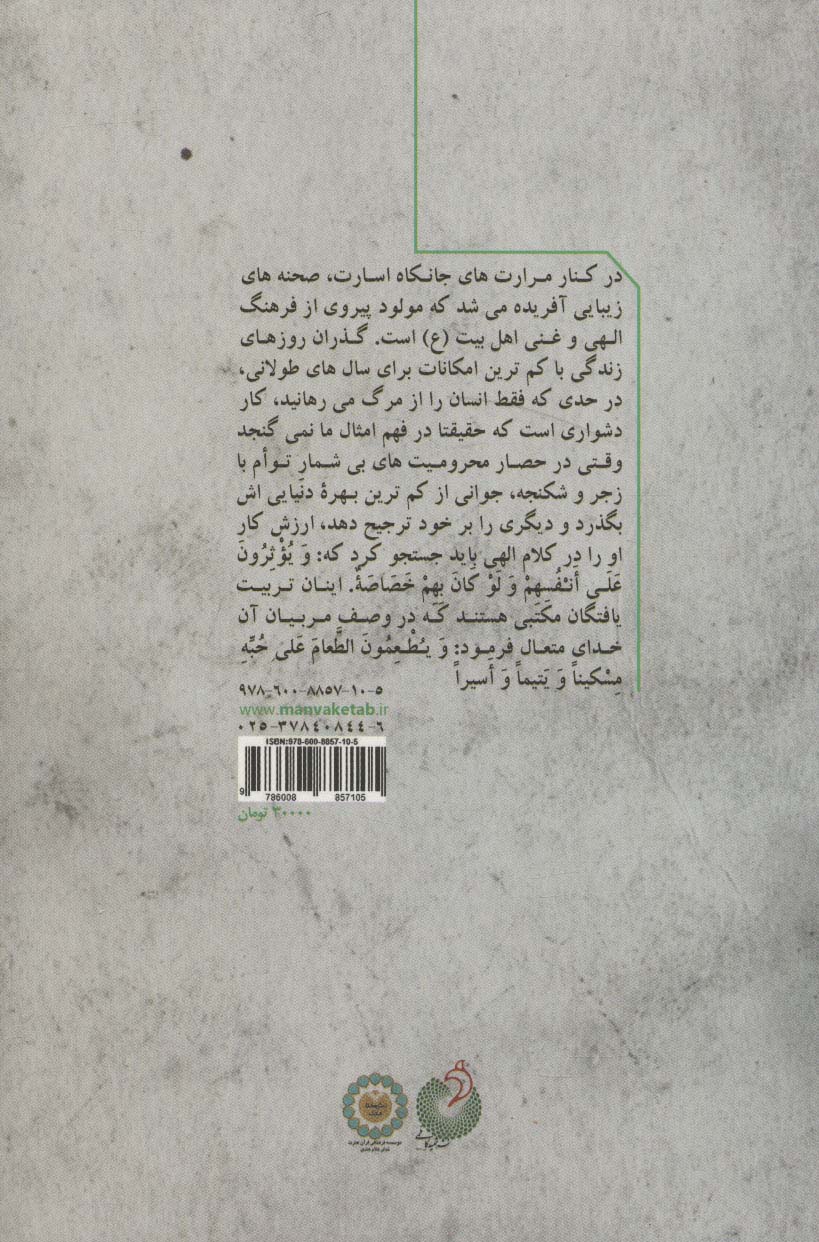 در کنار مرارت های جانکاه اسارت، صحنه های
زیبایی آفریده می شد که مولود پیروی از فرهنگ
الهی و غنی اهل بیت (ع) است. گذران روزهای
زندگی با کم ترین امکانات برای سال های طولانی،
در حدی که فقط انسان را از مرگ می رهانید، کار
دشواری است که حقیقتا در فهم امثال ما نمی گنجد
وقتی در حصار محرومیت های بی شمار توأم با
زجر و شکنجه، جوانی از کم ترین بهرهٔ دنیایی اش
بگذرد و دیگری را بر خود ترجیح دهد، ارزش کار
او را در کلام الهی باید جستجو کرد که: وَ یُؤْثِرُونَ
عَلَی أَنْفُسِهِمْ وَ لَوْ کَانَ بِهِمْ خَصَاصَةٌ. اینان تربیت
یافتگان مکتبی هستند که در وصف مربیان آن
خدای متعال فرمود: وَ یُطْعِمُونَ الطَّعامَ عَلی حُبِّهِ
مِسْکیناً وَ یَتیماً وَ أَسیراً
۹۷۸-۶۰۰-۸۸۵۷-۱۰-۵
www.manvaketab.ir
۰۲۵-۳۷۸٤۰۸٤٤-۶
ISBN:978-600-8857-10-5
9 786008 857105
۳۰۰۰۰ تومان
موسسه فرهنگی قرآن عترت